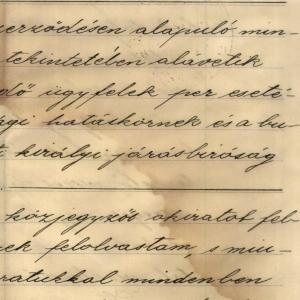 szerződésen alapuló min-
tekintetében alávetik
dő ügyfelek per eseté-
gi hatáskörnek és a bu-
i királyi járásbíróság
közjegyzői okiratot fel-
nek felolvastam, s miu-
ratukkal mindenben